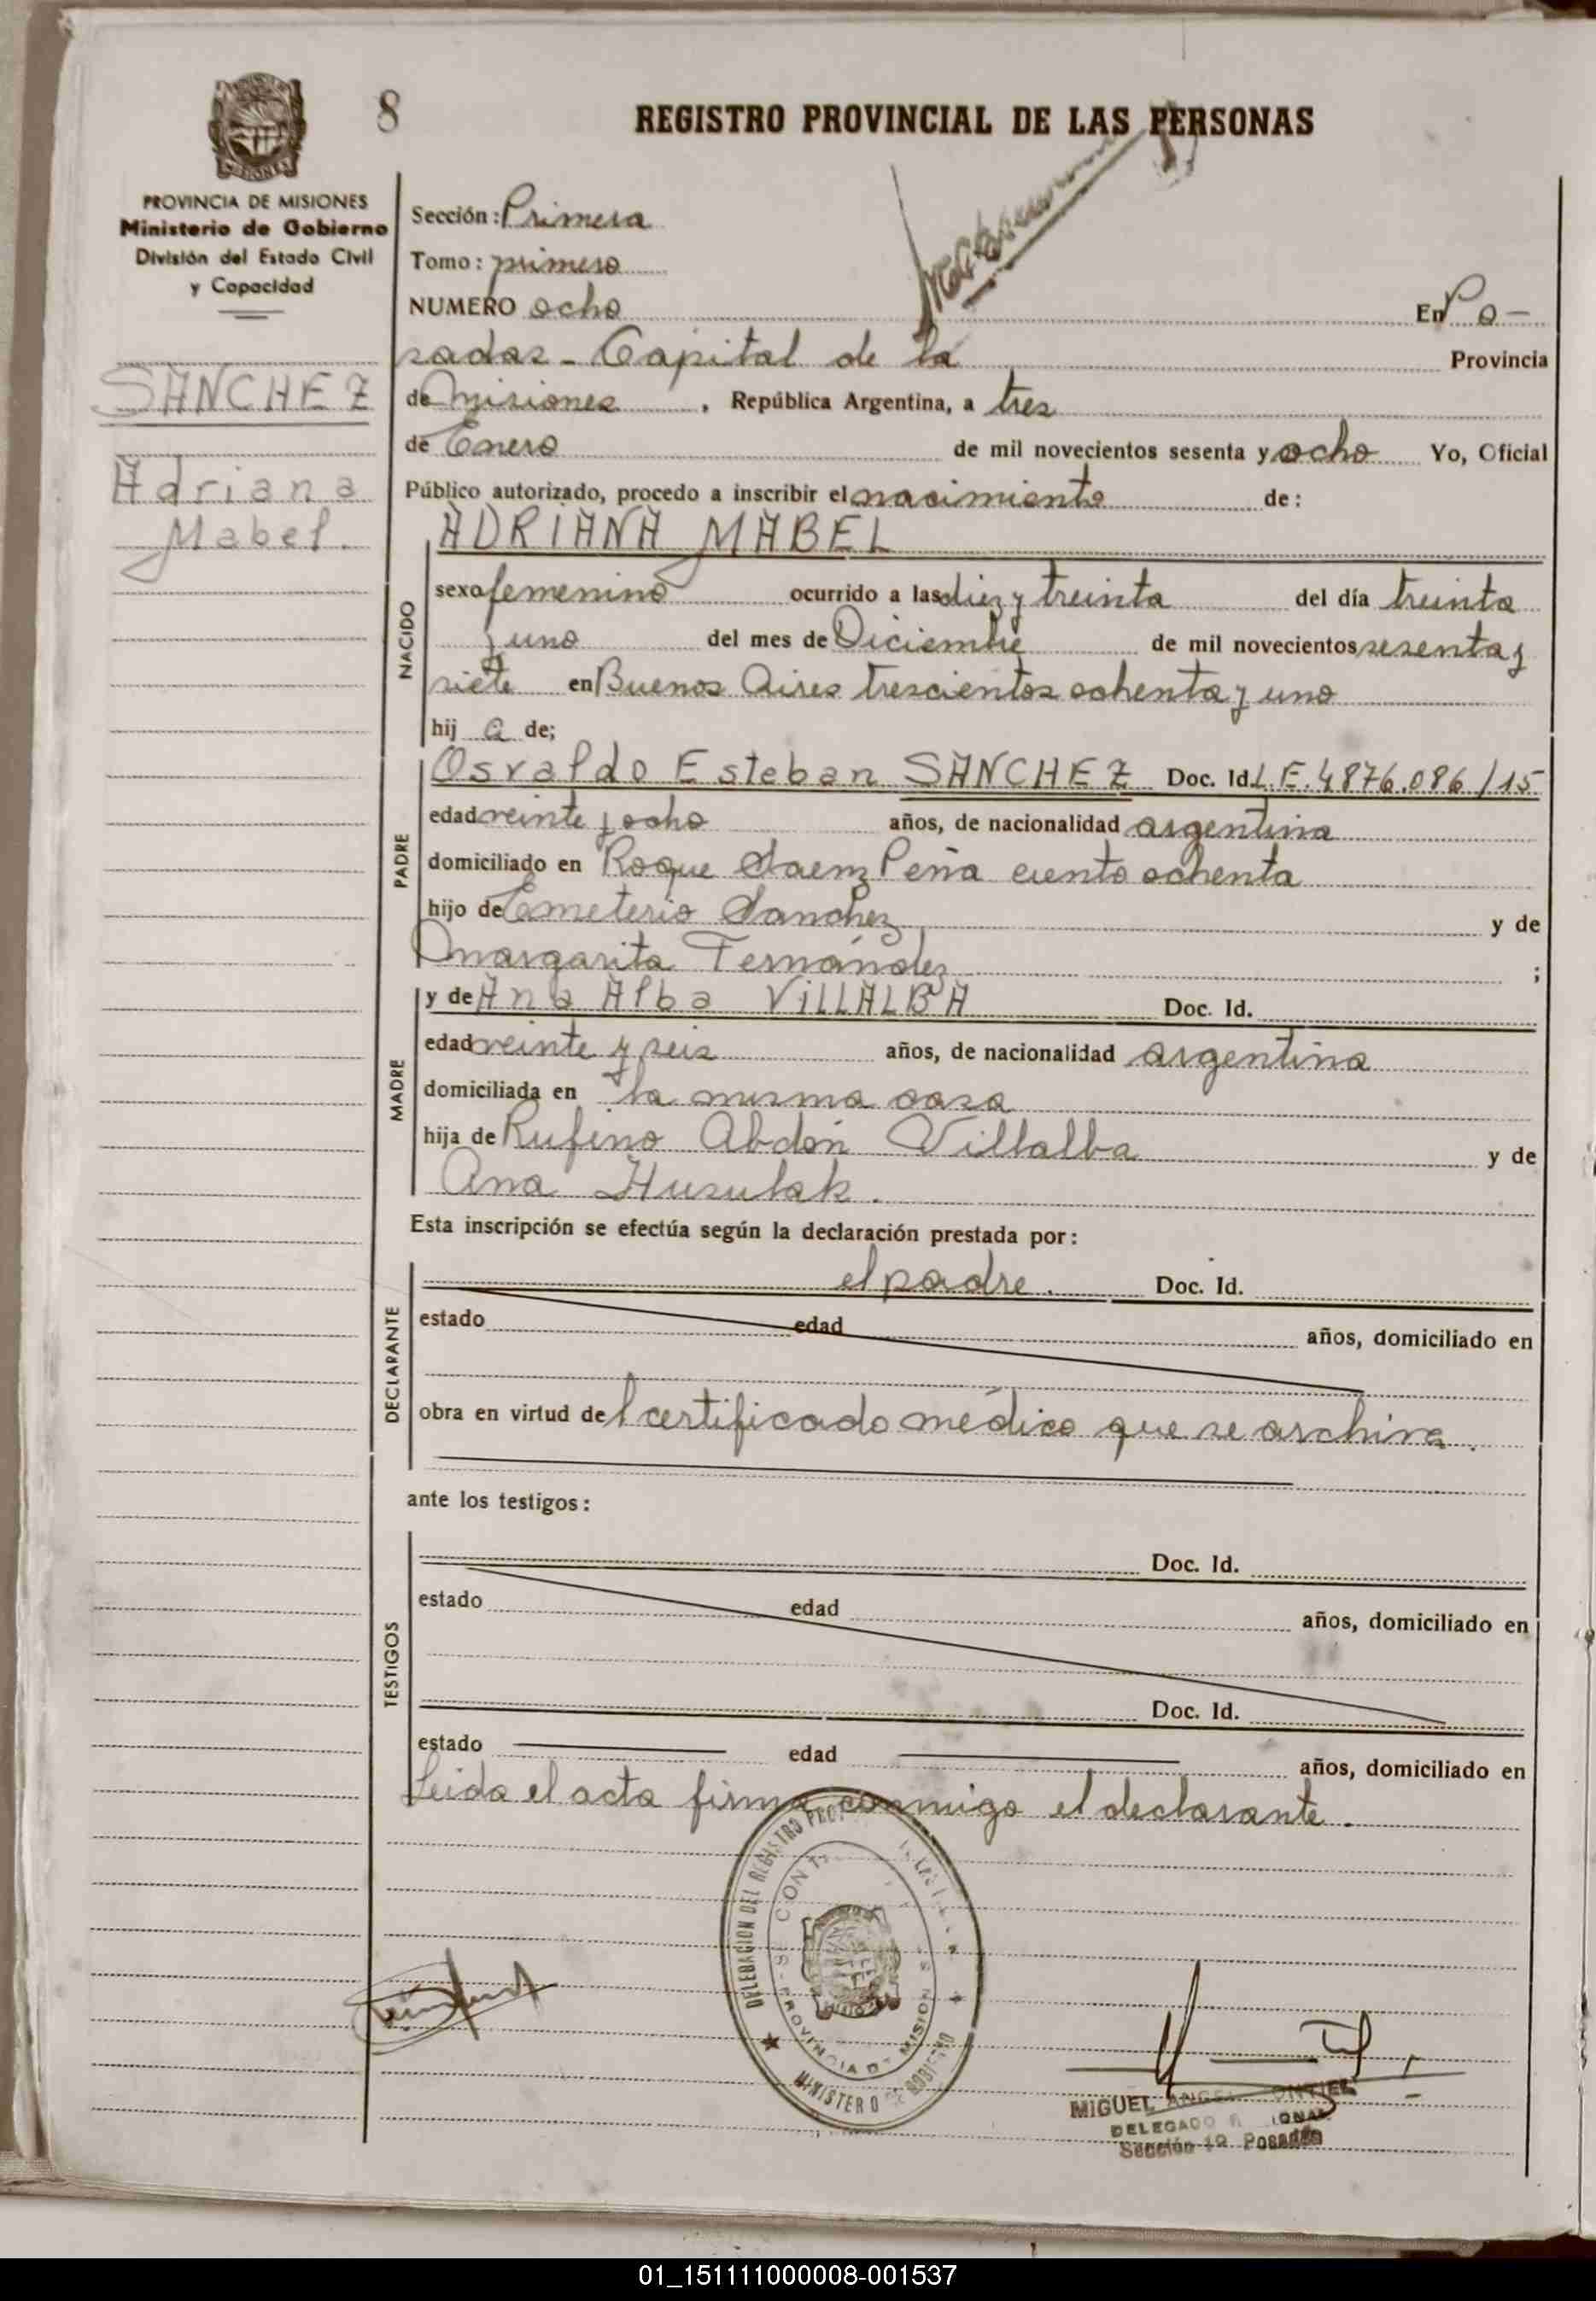 8
REGISTRO PROVINCIAL DE LAS PERSONAS
MISIONES
PROVINCIA DE MISIONES
Ministerio de Gobierno
División del Estado Civil
y Capacidad
SANCHEZ
Adriana
Mabel.
Sección: Primera
Tomo: primero
NUMERO ocho En Po-
sadas - Capital de la Provincia
de Misiones, República Argentina, a tres
de Enero de mil novecientos sesenta y ocho Yo, Oficial
Público autorizado, procedo a inscribir el nacimiento de:
ADRIANA MABEL
NACIDO
sexo femenino ocurrido a las diez y treinta del día treinta
y uno del mes de Diciembre de mil novecientos sesenta y
siete en Buenos Aires trescientos ochenta y uno
hij a de;
PADRE
Osvaldo Esteban SANCHEZ Doc. Id. L.E. 4876.086/15
edad veinte y ocho años, de nacionalidad argentina
domiciliado en Roque Saenz Peña ciento ochenta
hijo de Emeterio Sanchez y de
Margarita Fernández ;
MADRE
y de Ana Alba VILLALBA Doc. Id.
edad veinte y seis años, de nacionalidad argentina
domiciliada en la misma casa
hija de Rufino Abdón Villalba y de
Ana Husulak.
Esta inscripción se efectúa según la declaración prestada por:
DECLARANTE
el padre. Doc. Id.
estado edad años, domiciliado en
obra en virtud del certificado médico que se archiva.
ante los testigos:
TESTIGOS
Doc. Id.
estado edad años, domiciliado en
Doc. Id.
estado edad años, domiciliado en
Leida el acta firma conmigo el declarante.
DELEGACION DEL REGISTRO
PROVINCIA DE MISIONES
MINISTERIO DE GOBIERNO
MIGUEL ANGEL
DELEGADO
Sección 1ª Posadas
01_151111000008-001537